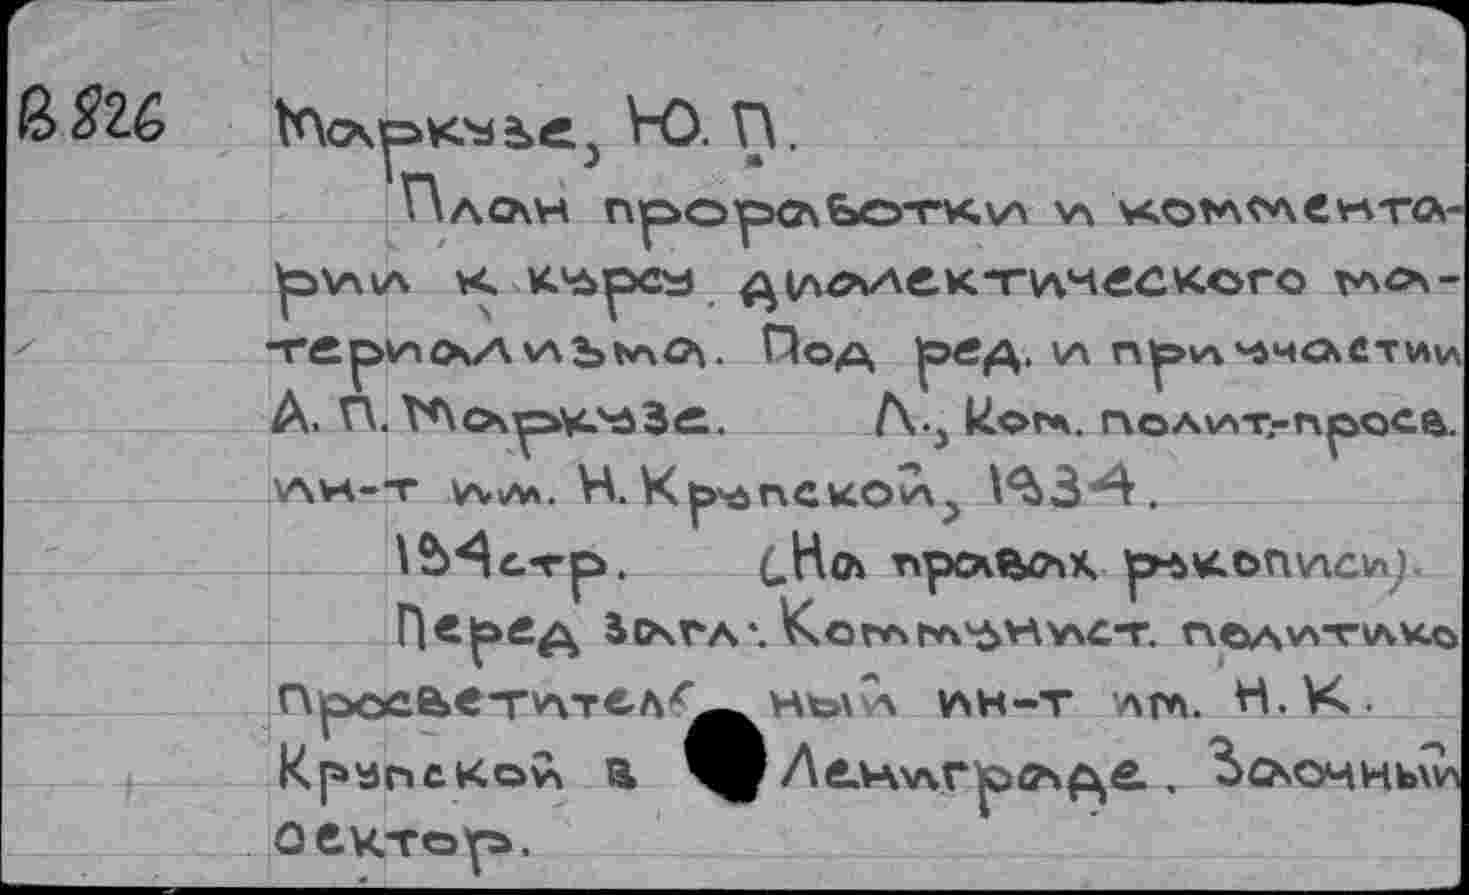 В826 Маркузе, Ю. П.
План проработки и коммента-
рии к курсу диалектического ма-
териализма. Под ред. и при участии
А. П. Маркузе. Л., Ком. полит.-просв.
ин-т им. Н. Крупской, 1934.
194стр. (На правах рукописи).
Перед загл.: Коммунист. политико
просветител ный ин-т им. Н. К.
Крупской в Ленинграде. Заочный
сектор.